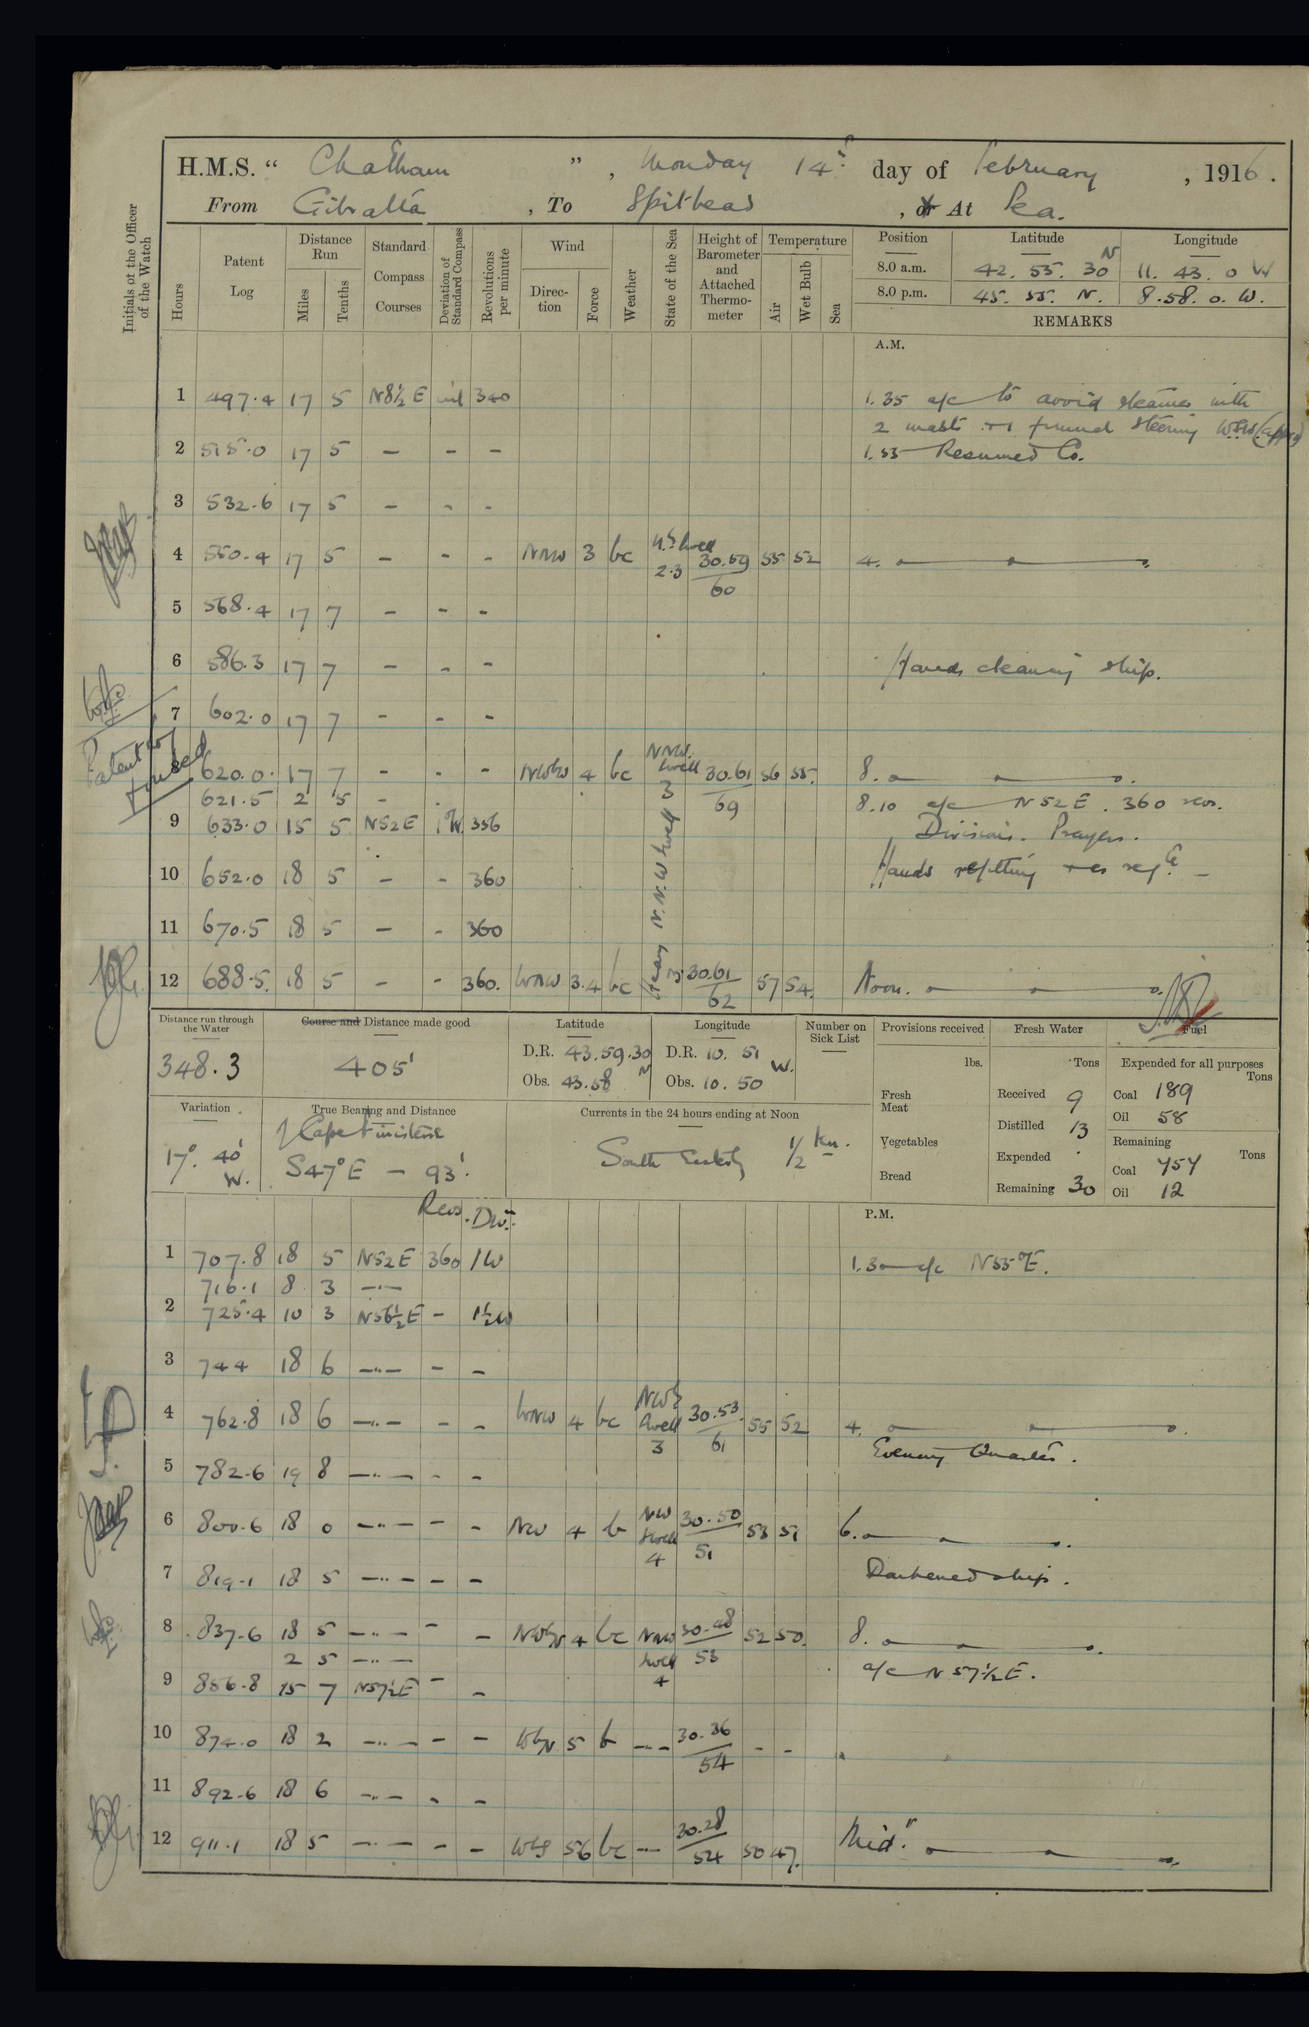 H.M.S. “ Chatham ”, Monday 14th day of February, 1916.
From Gibralta, To Spithead, or At Sea.
Initials of the Officer of the Watch
Hours
Patent Log
Distance Run
Miles
Tenths
Standard Compass Courses
Deviation of Standard Compass
Revolutions per minute
Wind
Direction
Force
Weather
State of the Sea
Height of Barometer and Attached Thermometer
Temperature
Air
Wet Bulb
Sea
Position Latitude Longitude
8.0 a.m. 42. 55. 30 N 11. 43. 0 W
8.0 p.m. 45. 55. N. 8. 58. 0. W.
REMARKS
A.M.
1 497.4 17 5 N8½E nil 340 1.35 a/c to avoid steamer with
2 masts & 1 funnel steering WSW (approx)
2 515.0 17 5 – – – 1.55 Resumed Co.
3 532.6 17 5 – – –
4 550.4 17 5 – – – NNW 3 bc 2.3 30.59/60 55 52 4.
5 568.4 17 7 – – –
6 586.3 17 7 – – – Hands cleaning ship.
7 602.0 17 7 – – –
Patent log
8 620.0 17 7 – – – NWbW 4 bc NNW. Swell 3 30.61/69 56 55. 8.
621.5 2 5 – 8.10 a/c N52E. 360 revs.
9 633.0 15 5 N52E 1°W. 356 Divisions. Prayers.
10 652.0 18 5 – – 360 Hands refitting
11 670.5 18 5 – – 360
Heavy N.N.W Swell
12 688.5. 18 5 – – 360. WNW 3.4 bc 30.61/62 57 54. Noon.
Distance run through the Water
348.3
Course and Distance made good
405'
Latitude
D.R. 43.59.30 N
Obs. 43.58
Longitude
D.R. 10. 51 W.
Obs. 10. 50
Number on Sick List
Provisions received
lbs.
Fresh Meat
Vegetables
Bread
Fresh Water
Tons
Received 9
Distilled 13
Expended
Remaining 30
Fuel
Expended for all purposes
Tons
Coal 189
Oil 58
Remaining
Tons
Coal 757
Oil 12
Variation
17° 40' W.
True Bearing and Distance
Cape Finisterre
S47°E – 93'.
Currents in the 24 hours ending at Noon
South Easterly ½ Kn.
Revs. Devn.
P.M.
1 707.8 18 5 N52E 360 1W 1.30 a/c N55°E.
716.1 8 3 —"—
2 725.4 10 3 N56½E – 1½W
3 744 18 6 —"— – –
4 762.8 18 6 —"— – – WNW 4 bc NWly Swell 3 30.53/61 55 52 4.
Evening Quarters.
5 782.6 19 8 —"— – –
6 800.6 18 0 —"— – – NW 4 b NW Swell 4 30.50/51 53 51 6.
7 819.1 18 5 —"— – – Darkened ship.
8 837.6 18 5 —"— – – NWbW 4 bc NNW Swell 4 30.48/53 52 50. 8.
2 5 —"— a/c N57½E.
9 856.8 15 7 N57½E – –
10 874.0 18 2 —"— – – WbN 5 b —"— 30.36/54 – –
11 892.6 18 6 —"— – –
12 911.1 18 5 —"— – – WbS 56 bc —"— 30.28/54 50 47. Midt.